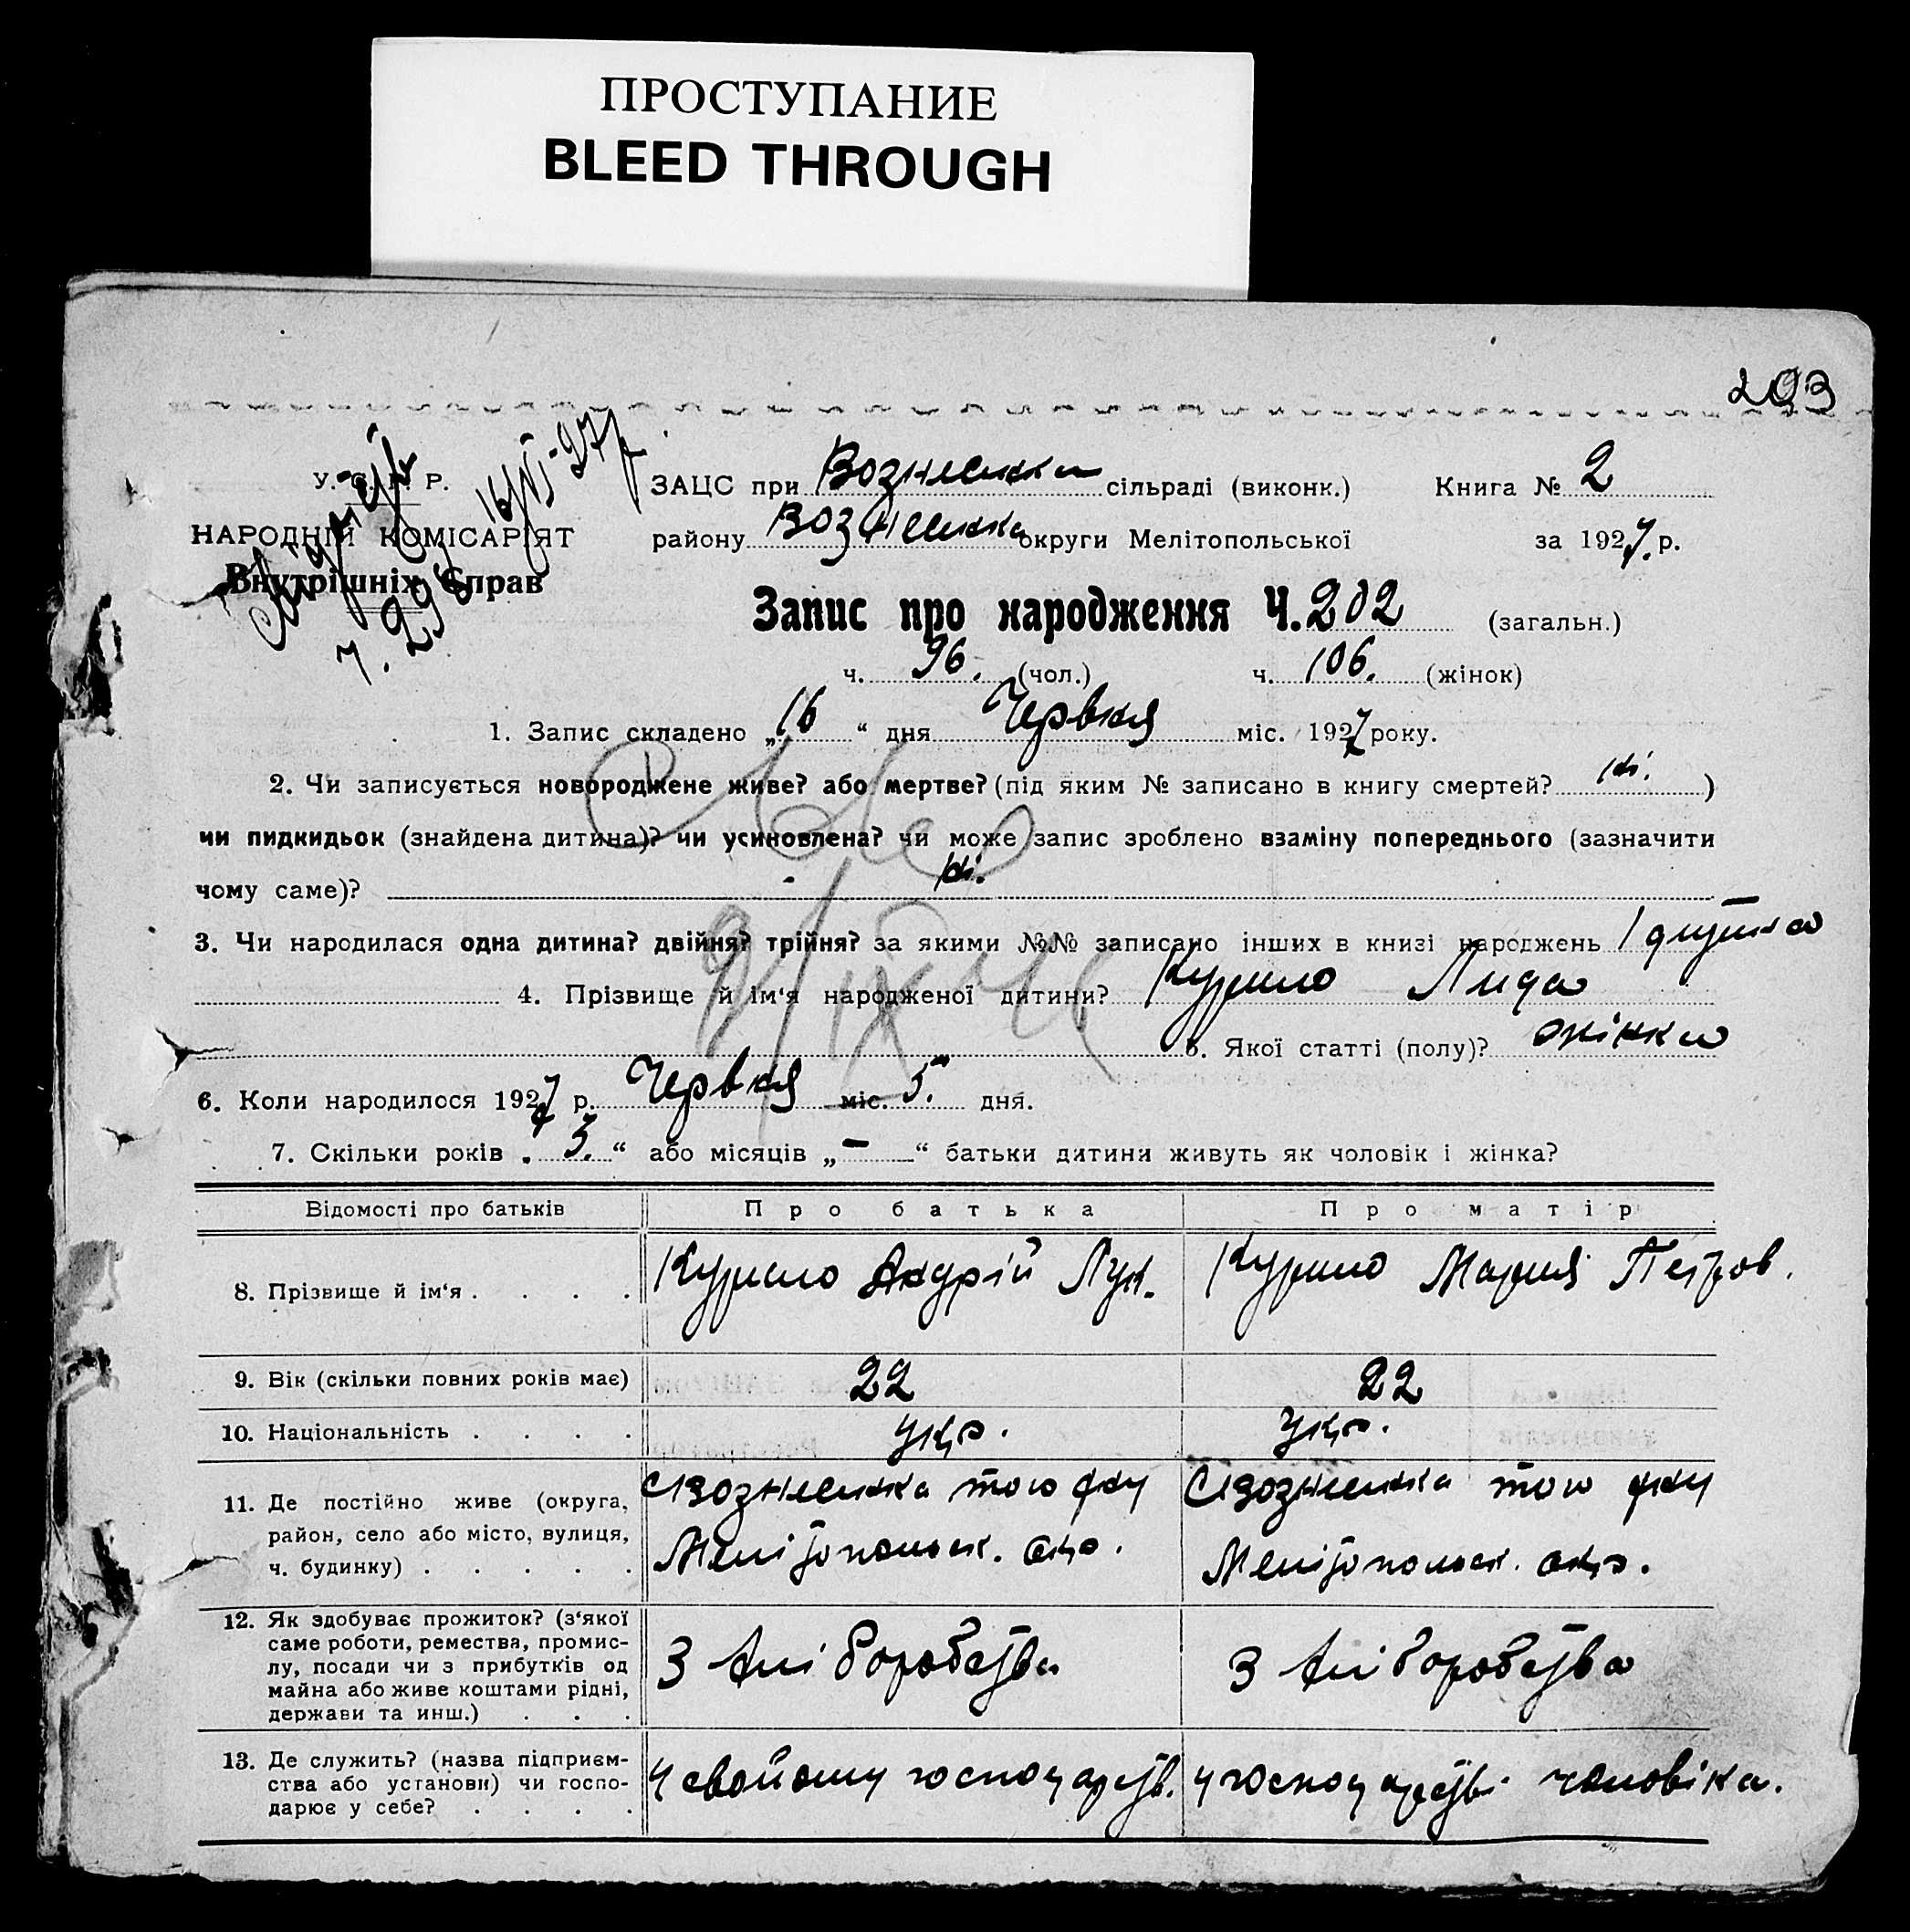 ПРОСТУПАНИЕ
BLEED THROUGH
203
У. С. Р. Р.
НАРОДНІЙ КОМІСАРІЯТ
Внутрішніх Справ
16/VI-27р
ЗАЦС при Вознесенка сільраді (виконк.) Книга № 2
району Вознесенка округи Мелітопольської за 1927 р.
Запис про народження Ч. 202 (загальн.)
ч. 96. (чол.) ч. 106. (жінок)
1. Запис складено „16“ дня Червня міс. 1927 року.
2. Чи записується новороджене живе? або мертве? (під яким № записано в книгу смертей? )
чи пидкидьок (знайдена дитина)? чи усиновлена? чи може запис зроблено взаміну попереднього (зазначити
чому саме)?
3. Чи народилася одна дитина? двійня? трійня? за якими №№ записано інших в книзі народжень 1 дитина
4. Прізвище й ім‘я народженої дитини? Курило Лида
5. Якої статті (полу)? жінка
6. Коли народилося 1927 р. Червня міс. 5. дня.
7. Скільки років „3.“ або місяців „—“ батьки дитини живуть як чоловік і жінка?
Відомості про батьків Про батька Про матір
8. Прізвище й ім‘я . . . . Курило Андрій Лук. Курило Мария Петров.
9. Вік (скільки повних років має) 22 22
10. Національність . . . . укр. укр.
11. Де постійно живе (округа, район, село або місто, вулиця, ч. будинку) . . . . . С Вознесенка того р-ну С Вознесенка того р-ну
Мелітопольськ. окр. Мелітопольськ. окр.
12. Як здобуває прожиток? (з‘якої
саме роботи, ремества, промис-
лу, посади чи з прибутків од
майна або живе коштами рідні,
держави та инш.) . . . З хліборобства З хліборобства
13. Де служить? (назва підприєм-
ства або установи) чи госпо-
дарює у себе? . . . . У свойому господарств. у господарстві чоловіка.